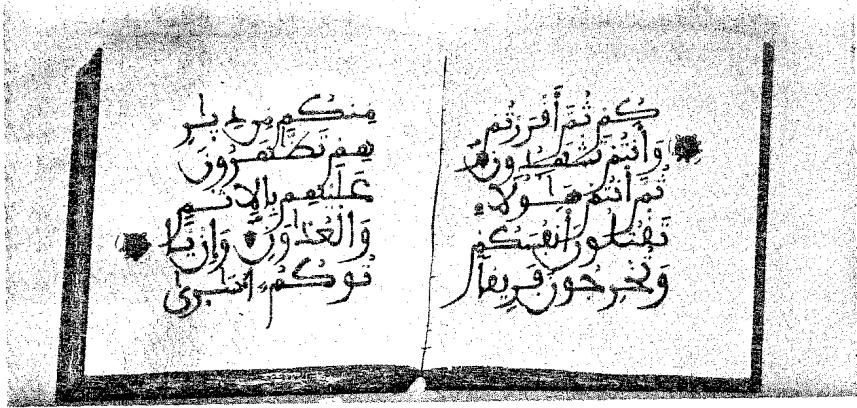 كُمْ ثُمَّ أَقْرَرْتُمْ
وَأَنتُمْ تَشْهَدُونَ
ثُمَّ أَنتُمْ هَٰؤُلَاءِ
تَقْتُلُونَ أَنفُسَكُمْ
وَتُخْرِجُونَ فَرِيقاً
مِنكُم مِن دِيٰرِ
هِمْ تَظَّهَرُونَ
عَلَيْهِم بِالِاثْمِ
وَالْعُدْوَٰنِ وَإِنْ يَا
تُوكُمُ أُسَٰرىٰ